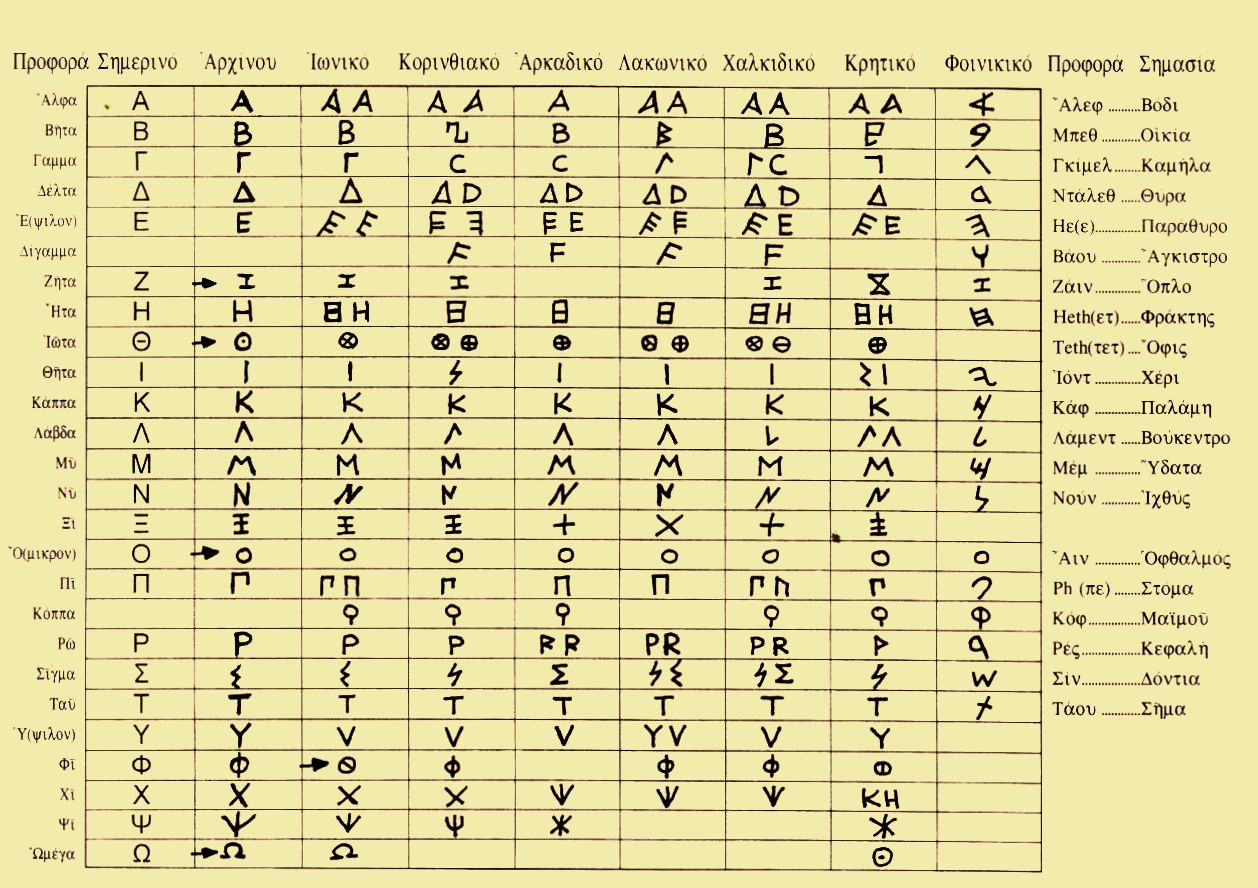 Προφορά Σημερινό Ἀρχίνου Ἰωνικό Κορινθιακό Ἀρκαδικό Λακωνικό Χαλκιδικό Κρητικό Φοινικικό Προφορά Σημασία
Ἄλφα Α Α Α Α Α Α Α Α Α Α Α Α Α Α Ἄλεφ .........Βόδι
Βῆτα Β Β Β Β Β Β Μπεθ ...........Οἰκία
Γάμμα Γ Γ Γ C C Γ C Γκίμελ......Καμήλα
Δέλτα Δ Δ Δ Δ D Δ D Δ D Δ D Δ Ντάλεθ .....Θύρα
Ἐ(ψιλον) Ε Ε Ε Ε Ε Ε Ε Ε Ε Ε Ε Ε Ε Ηε(ε)...........Παράθυρο
Δίγαμμα F F F F Βάου ..........Ἄγκιστρο
Ζῆτα Ζ Ζάιν............Ὅπλο
Ἦτα Η Η Η Η Η Heth(ετ).....Φράκτης
Ἰῶτα Θ Teth(τετ)....Ὄφις
Θῆτα Ι Ι Ι Ι Ι Ι Ι Ἰόντ ...........Χέρι
Κάππα Κ Κ Κ Κ Κ Κ Κ Κ Κάφ ...........Παλάμη
Λάβδα Λ Λ Λ Λ Λ Λ Λ Λ Λάμεντ .....Βούκεντρο
Μῦ Μ Μ Μ Μ Μ Μ Μ Μ Μέμ ..........Ὕδατα
Νῦ Ν Ν Ν Ν Ν Ν Ν Ν Νούν ..........Ἰχθύς
Ξῖ Ξ
Ὄ(μικρον) Ο Ο Ο Ο Ο Ο Ο Ο Ο Ἄιν ............Ὀφθαλμός
Πῖ Π Π Π Π Ph (πε) .......Στόμα
Κόππα Κόφ...............Μαϊμοῦ
Ρῶ Ρ Ρ Ρ Ρ R R Ρ R Ρ R Ρ Ρές...............Κεφαλή
Σῖγμα Σ Σ Σ Σίν................Δόντια
Ταῦ Τ Τ Τ Τ Τ Τ Τ Τ Τάου ..........Σῆμα
Ὕ(ψιλον) Υ Υ V V V Υ V V Υ
Φῖ Φ Φ Φ Φ Φ
Χῖ Χ Χ Χ Χ Ψ Ψ Ψ ΚΗ
Ψῖ Ψ Ψ Ψ Ψ
Ὠμέγα Ω Ω Ω